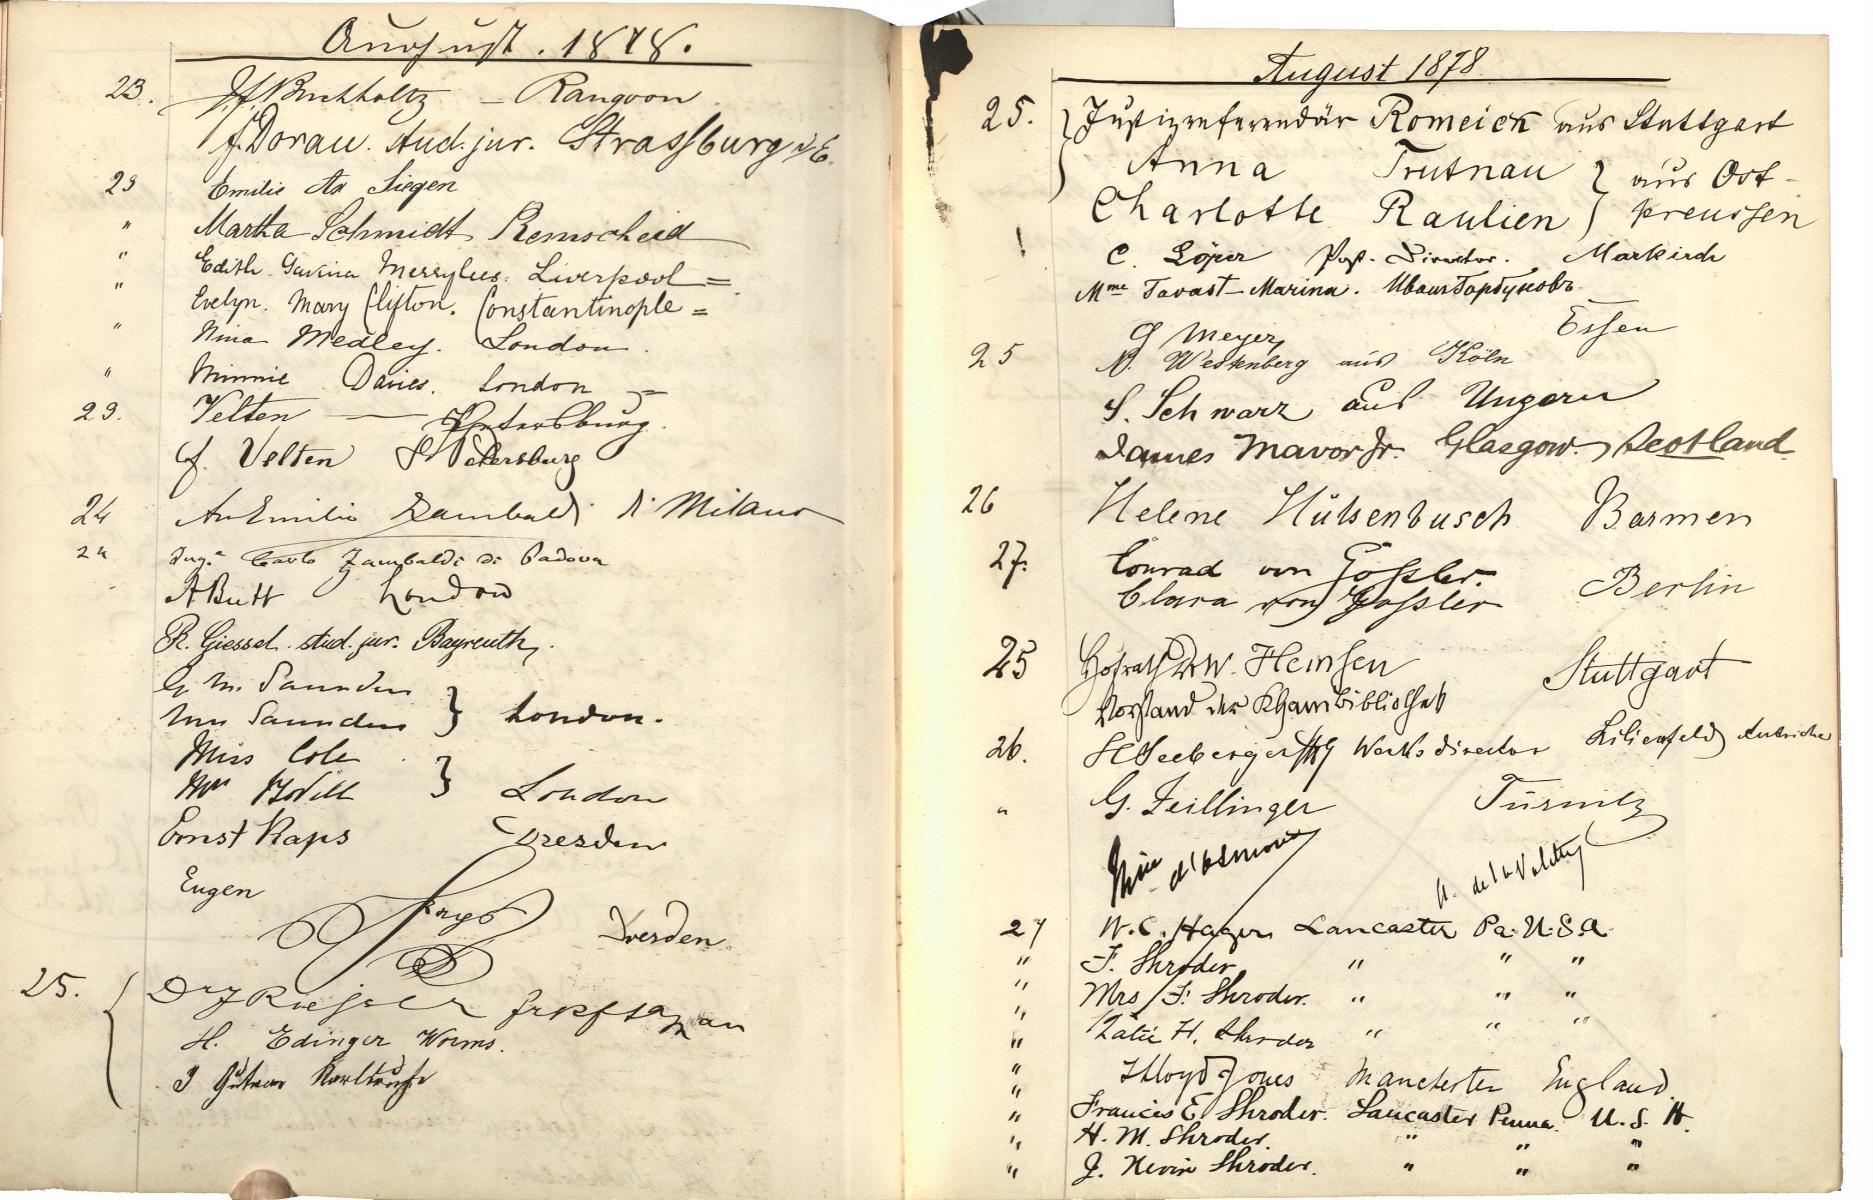 August. 1878.
23. Buchholtz – Rangoon
J. Dorau. stud. jur. Strassburg i/E.
23 Emilie Siegen
" Martha Schmidt, Remscheid
" Edith Merrylees. Liverpool =
" Evelyn. Mary Clifton. Constantinople =
" Nina Medley. London.
" Minnie Davies. London
23. Velten — Petersburg.
Velten St Petersburg
24 Emilio Zambaldi di Milano
24 Ing.e Carlo Zambaldi di Padova
A Butt London
R. Giessel. stud. jur. Bayreuth.
G. M. Saunders
Mrs Saunders } London.
Miss Cole
} London
Ernst Kaps Dresden
Eugen
Dresden
25. Dr
H. Edinger Worms.
Karlsruhe
August 1878
25. Justizreferendär Romeick aus Stuttgart
Anna Trutnau } aus Ost-
Charlotte Raulien } preussen
C. Löper Post-Director. Markirch
Mme Marina. Иванъ Горбуновъ
G Meyer, Essen
25 Westenberg aus Köln
S. Schwarz aus Ungarn
James Mavor Jr. Glasgow, Scotland
26 Helene Hülsenbusch Barmen
27. Conrad von Gossler.
Clara von Gossler Berlin
25 Hofrath Dr W. Hemsen Stuttgart
Vorstand der Bibliothek
26. Seeberger Werksdirector Lilienfeld Autriche
" G. Zeillinger Türnitz
27 W. C. Hager Lancaster Pa. U.S.A.
" F. Shroder " " "
" Mrs F. Shroder. " " "
" Katie H. Shroder " " "
" Lloyd Jones Manchester England.
" Frances E. Shroder. Lancaster Penna. U.S.A.
" H. M. Shroder. " " "
" J. Nevin Shroder. " " "